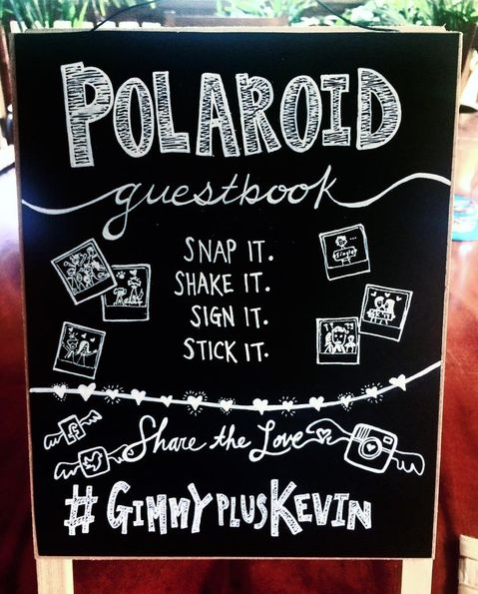 POLAROID
guestbook
SNAP IT.
SHAKE IT.
SIGN IT.
STICK IT.
Share the Love
#GIMMYPLUSKEVIN